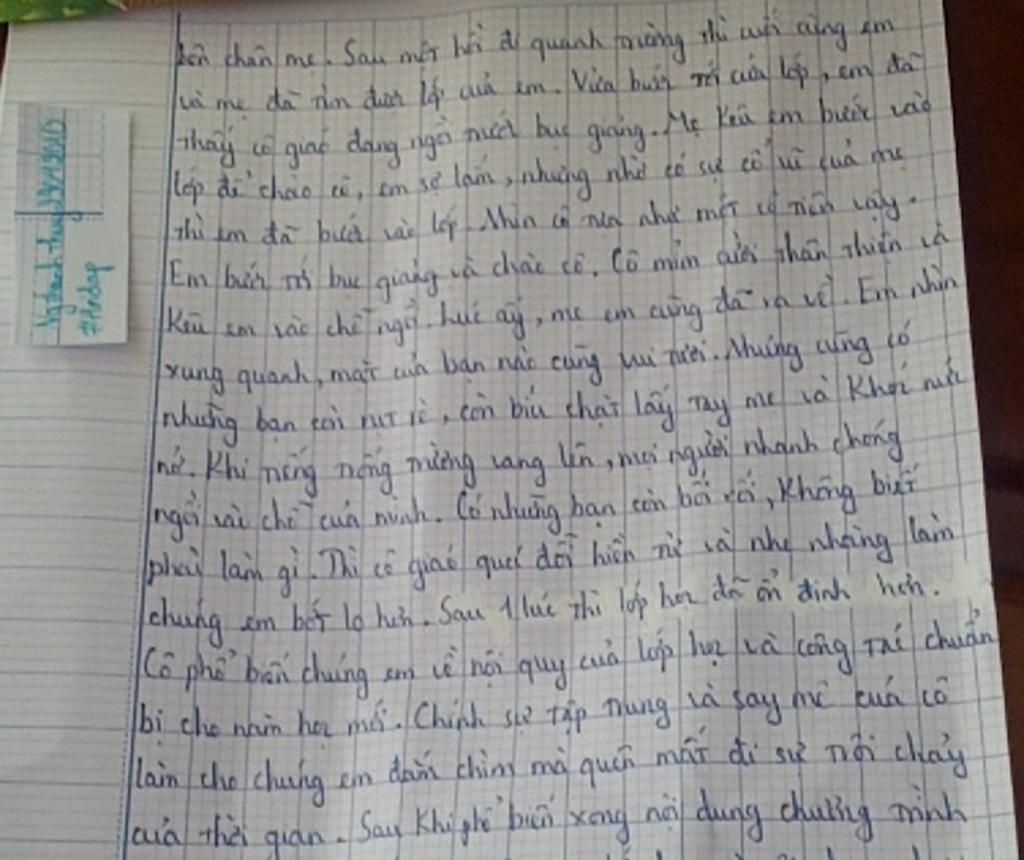 bên chân mẹ. Sau một hồi đi quanh trường thì cuối cùng em
và mẹ đã tìm được lớp của em. Vừa bước tới cửa lớp, em đã
thấy cô giáo đang ngồi trước bục giảng. Mẹ kêu em bước vào
lớp để chào cô, em sợ lắm, nhưng nhờ có sự cổ vũ của mẹ
thì em đã bước vào lớp. Nhìn cô như một cô tiên vậy.
Em bước tới bục giảng và chào cô. Cô mỉm cười thân thiện và
kêu em vào chỗ ngồi. Lúc ấy, mẹ em cũng đã ra về. Em nhìn
xung quanh, mặt của bạn nào cũng vui tươi. Nhưng cũng có
những bạn còn rụt rè, còn bíu chặt lấy tay mẹ và khóc nức
nở. Khi tiếng trống trường vang lên, mọi người nhanh chóng
ngồi vào chỗ của mình. Có những bạn còn bối rối, không biết
phải làm gì. Thì cô giáo dối hiền từ và nhẹ nhàng làm
chúng em bớt lo hơn. Sau 1 lúc thì lớp học đã ổn định hơn.
Cô phổ biến chúng em về nội quy của lớp học và công tác chuẩn
bị cho năm học mới. Chính sự tập trung và say mê của cô
làm cho chúng em đắm chìm mà quên mất đi sự trôi chảy
của thời gian. Sau khi phổ biến xong nội dung chương trình
Ng thanh thuy
#Andap